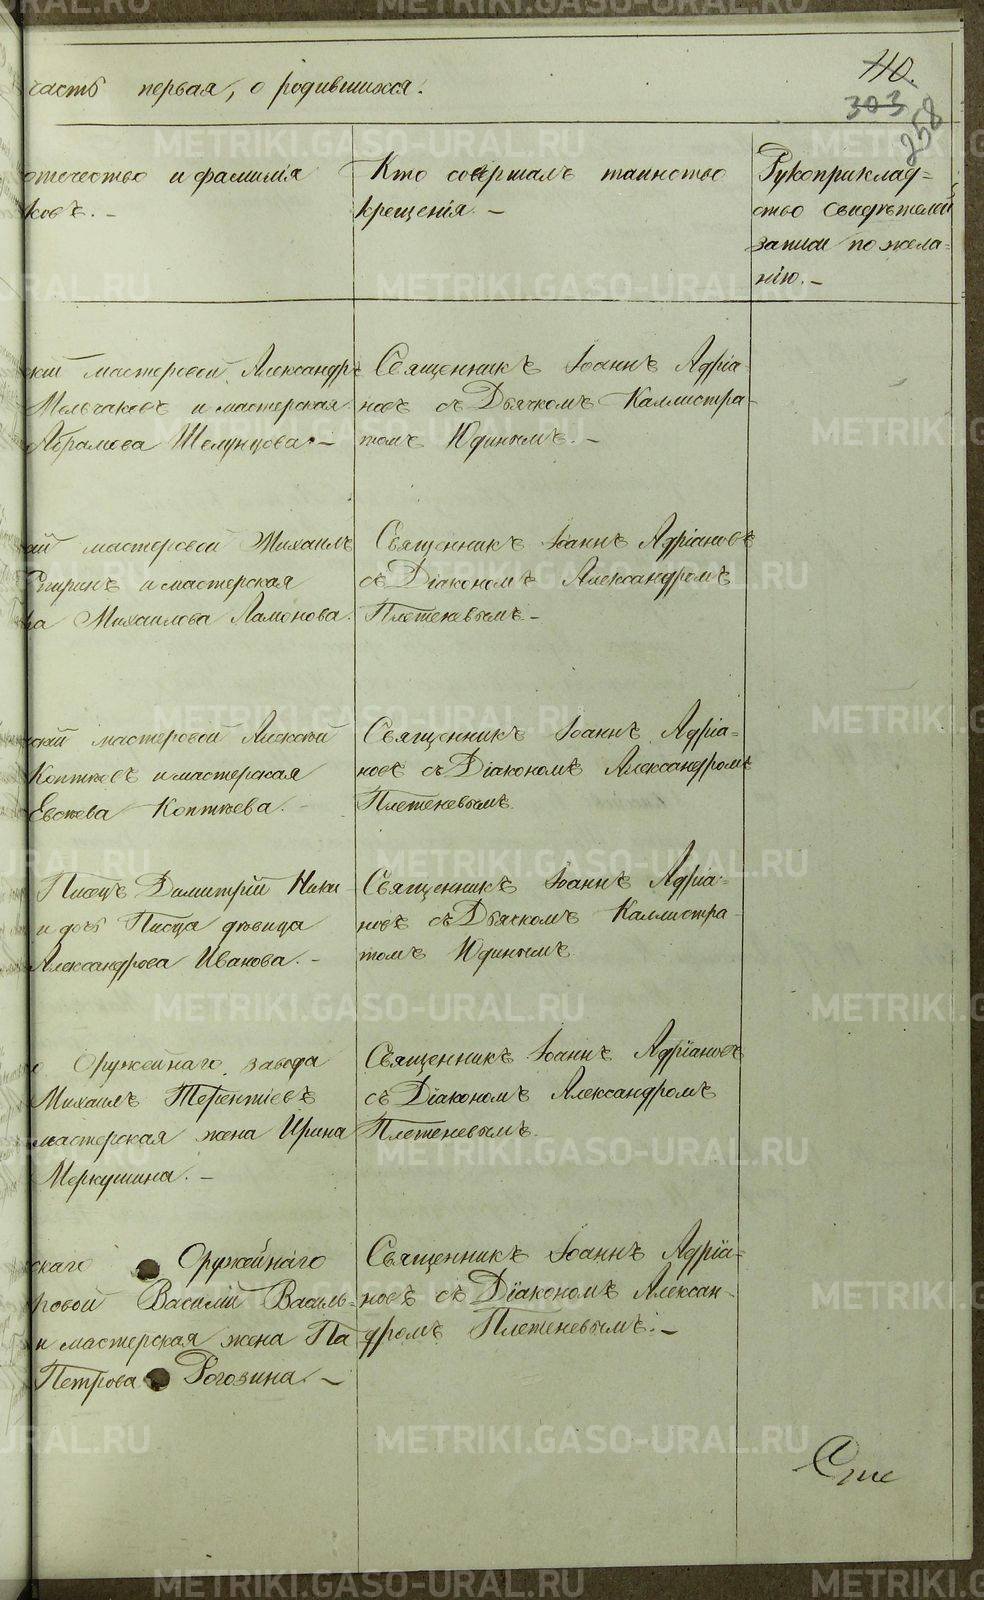 часть первая, о родившихся.
110.
303
258
отчество и фамилія
ковъ. -
Кто совершалъ таинство
крещенія. -
Рукоприклад=
ство свидѣтелей
записи по жела=
нію. -
кій мастеровой Александръ
Мельчаковъ и мастерская
Абрамова Шелунцова. -
Священникъ Іоаннъ Адріа
новъ съ Дьячкомъ Каллистра-
томъ Юдинымъ. -
кій мастеровой Михаилъ
и мастерская
Михаилова Ламонова.
Священникъ Іоаннъ Адріановъ
съ Діакономъ Александромъ
Плетеневымъ. -
скій мастеровой Алексѣй
Коптѣевъ и мастерская
Евсѣева Коптѣева. -
Священникъ Іоаннъ Адріа=
новъ съ Діакономъ Александромъ
Плетеневымъ
Писецъ Димитрій Ники
и дочь Писца дѣвица
Александрова Иванова. -
Священникъ Іоаннъ Адріа=
новъ съ Дьячкомъ Каллистра-
томъ Юдинымъ
Оружейнаго завода
Михаилъ Терентіевъ
мастерская жена Ирина
Меркушина. -
Священникъ Іоаннъ Адріановъ
съ Діакономъ Александромъ
Плетеневымъ.
скаго Оружейнаго
ровой Василій Василь-
и мастерская жена Па
Петрова Рогозина. -
Священникъ Іоаннъ Адріа=
новъ съ Діакономъ Алексан-
дромъ Плетеневымъ. -
METRIKI.GASO-URAL.RU